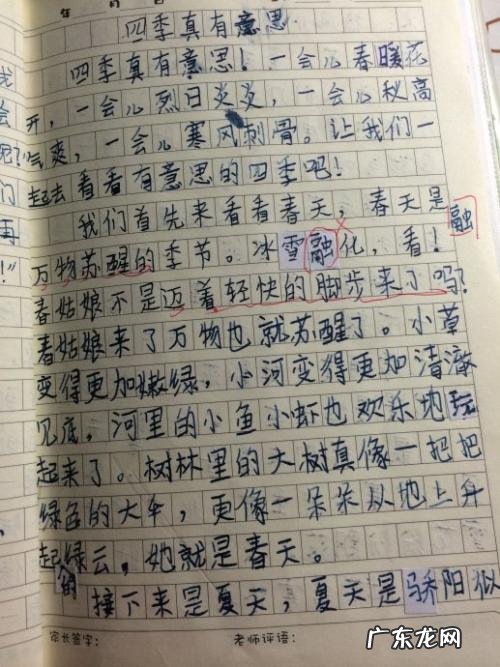 年 月 日
四季真有意思
四季真有意思！一会儿春暖花
开，一会儿烈日炎炎，一会儿秋高
气爽，一会儿寒风刺骨。让我们一
起去看看有意思的四季吧！
我们首先来看看春天，春天是
融
万物苏醒的季节。冰雪融化，看！
春姑娘不是迈着轻快的脚步来了吗？
春姑娘来了万物也就苏醒了。小草
变得更加嫩绿，小河变得更加清澈
见底，河里的小鱼小虾也欢乐地玩
起来了。树林里的大树真像一把把
绿色的大伞，更像一朵朵从地上升
起的绿云，她就是春天。
接下来是夏天，夏天是骄阳似
家长签字： 老师评语：
广东龙网